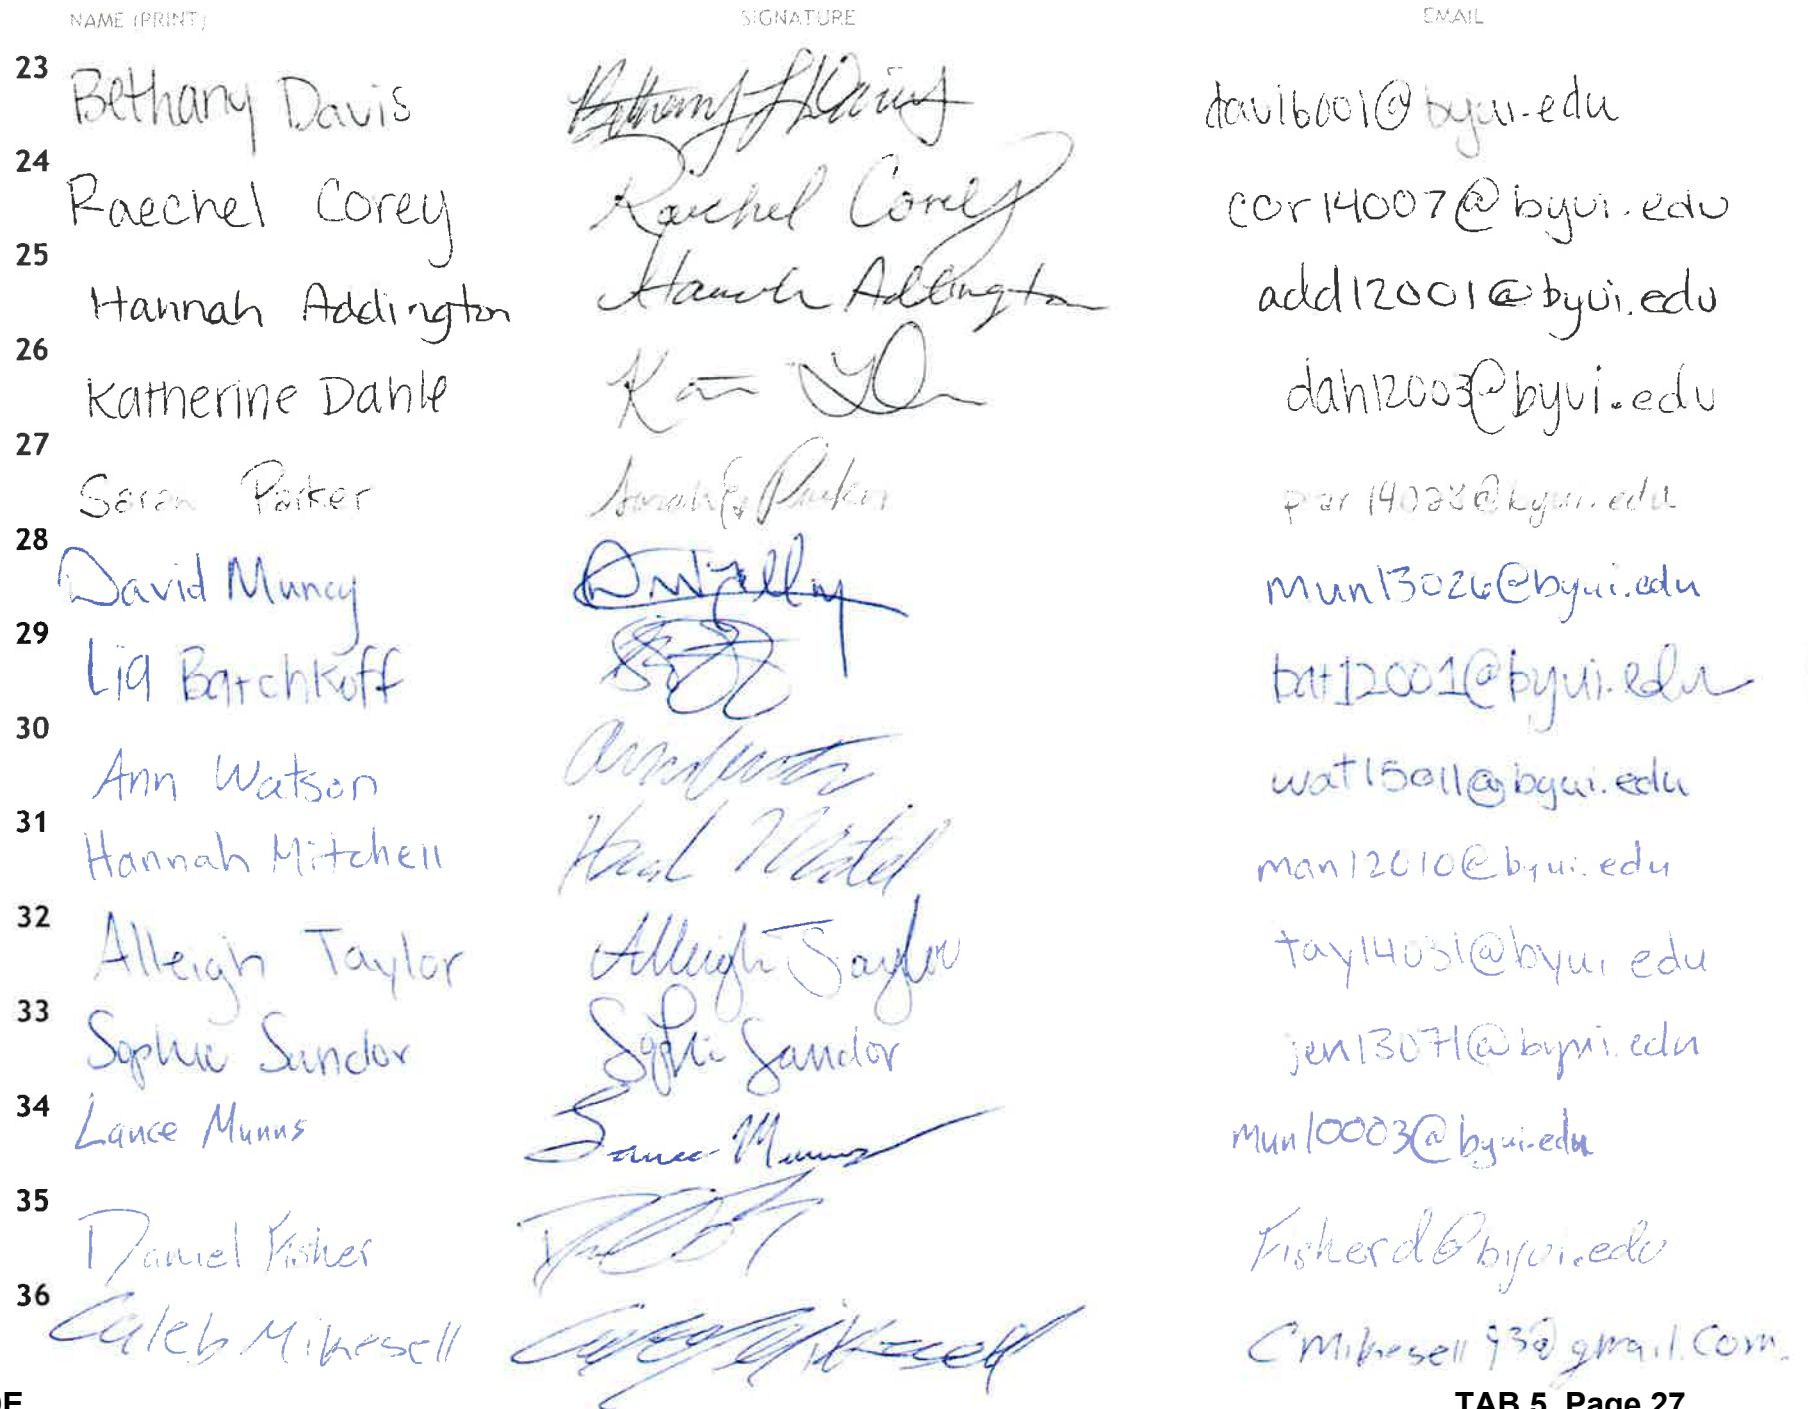 NAME (PRINT) SIGNATURE EMAIL
23 Bethany Davis Bethany L Davis
24 Raechel Corey Raechel Corey cor14007@byui.edu
25 Hannah Addington Hannah Addington add12001@byui.edu
26 Katherine Dahle dah12003@byui.edu
27 Sarah Parker Sarah E Parker par14028@byui.edu
28 David Muncy mun13026@byui.edu
29 Lia Batchkoff bat12001@byui.edu
30 Ann Watson wat15011@byui.edu
31 Hannah Mitchell man12010@byui.edu
32 Alleigh Taylor Alleigh Taylor tay14031@byui.edu
33 Sophie Sandor Sophie Sandor jen13071@byui.edu
34 Lance Munns Lance Munns mun10003@byui.edu
35 Daniel Fisher Fisherd@byui.edu
36 Caleb Mikesell Caleb Mikesell CMikesell93@gmail.Com
TAB 5 Page 27